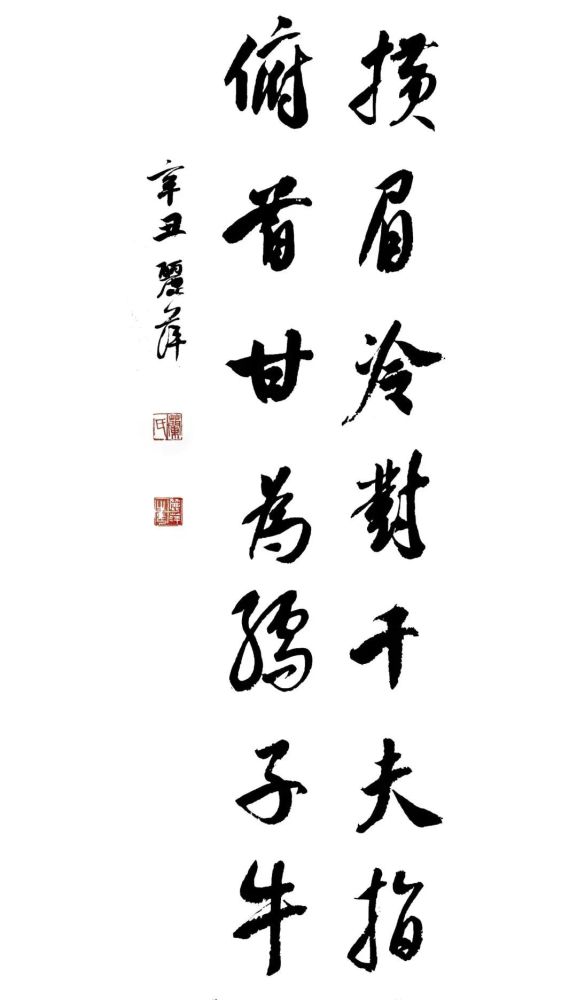 橫眉冷對千夫指
俯首甘為孺子牛
辛丑 麗